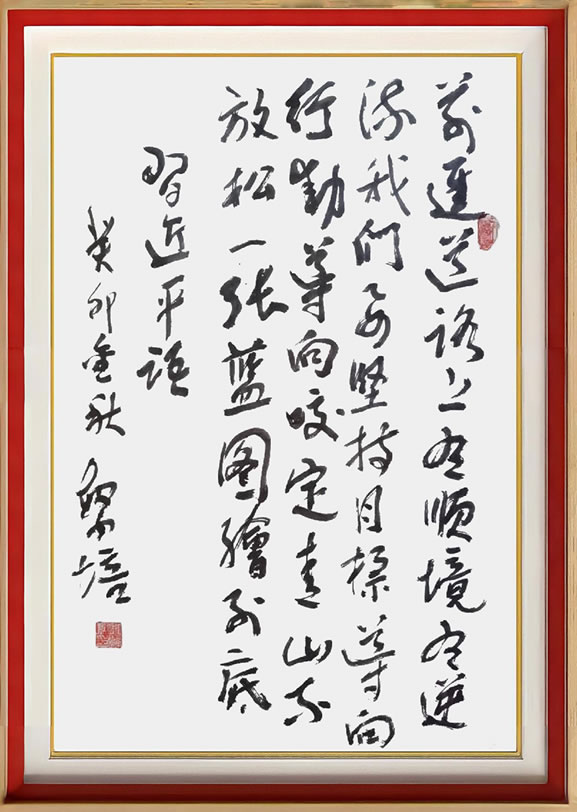 前進道路上有順境有逆
流我們要堅持目標導向
行動導向咬定青山不
放松一張藍圖繪到底
習近平語
癸卯金秋